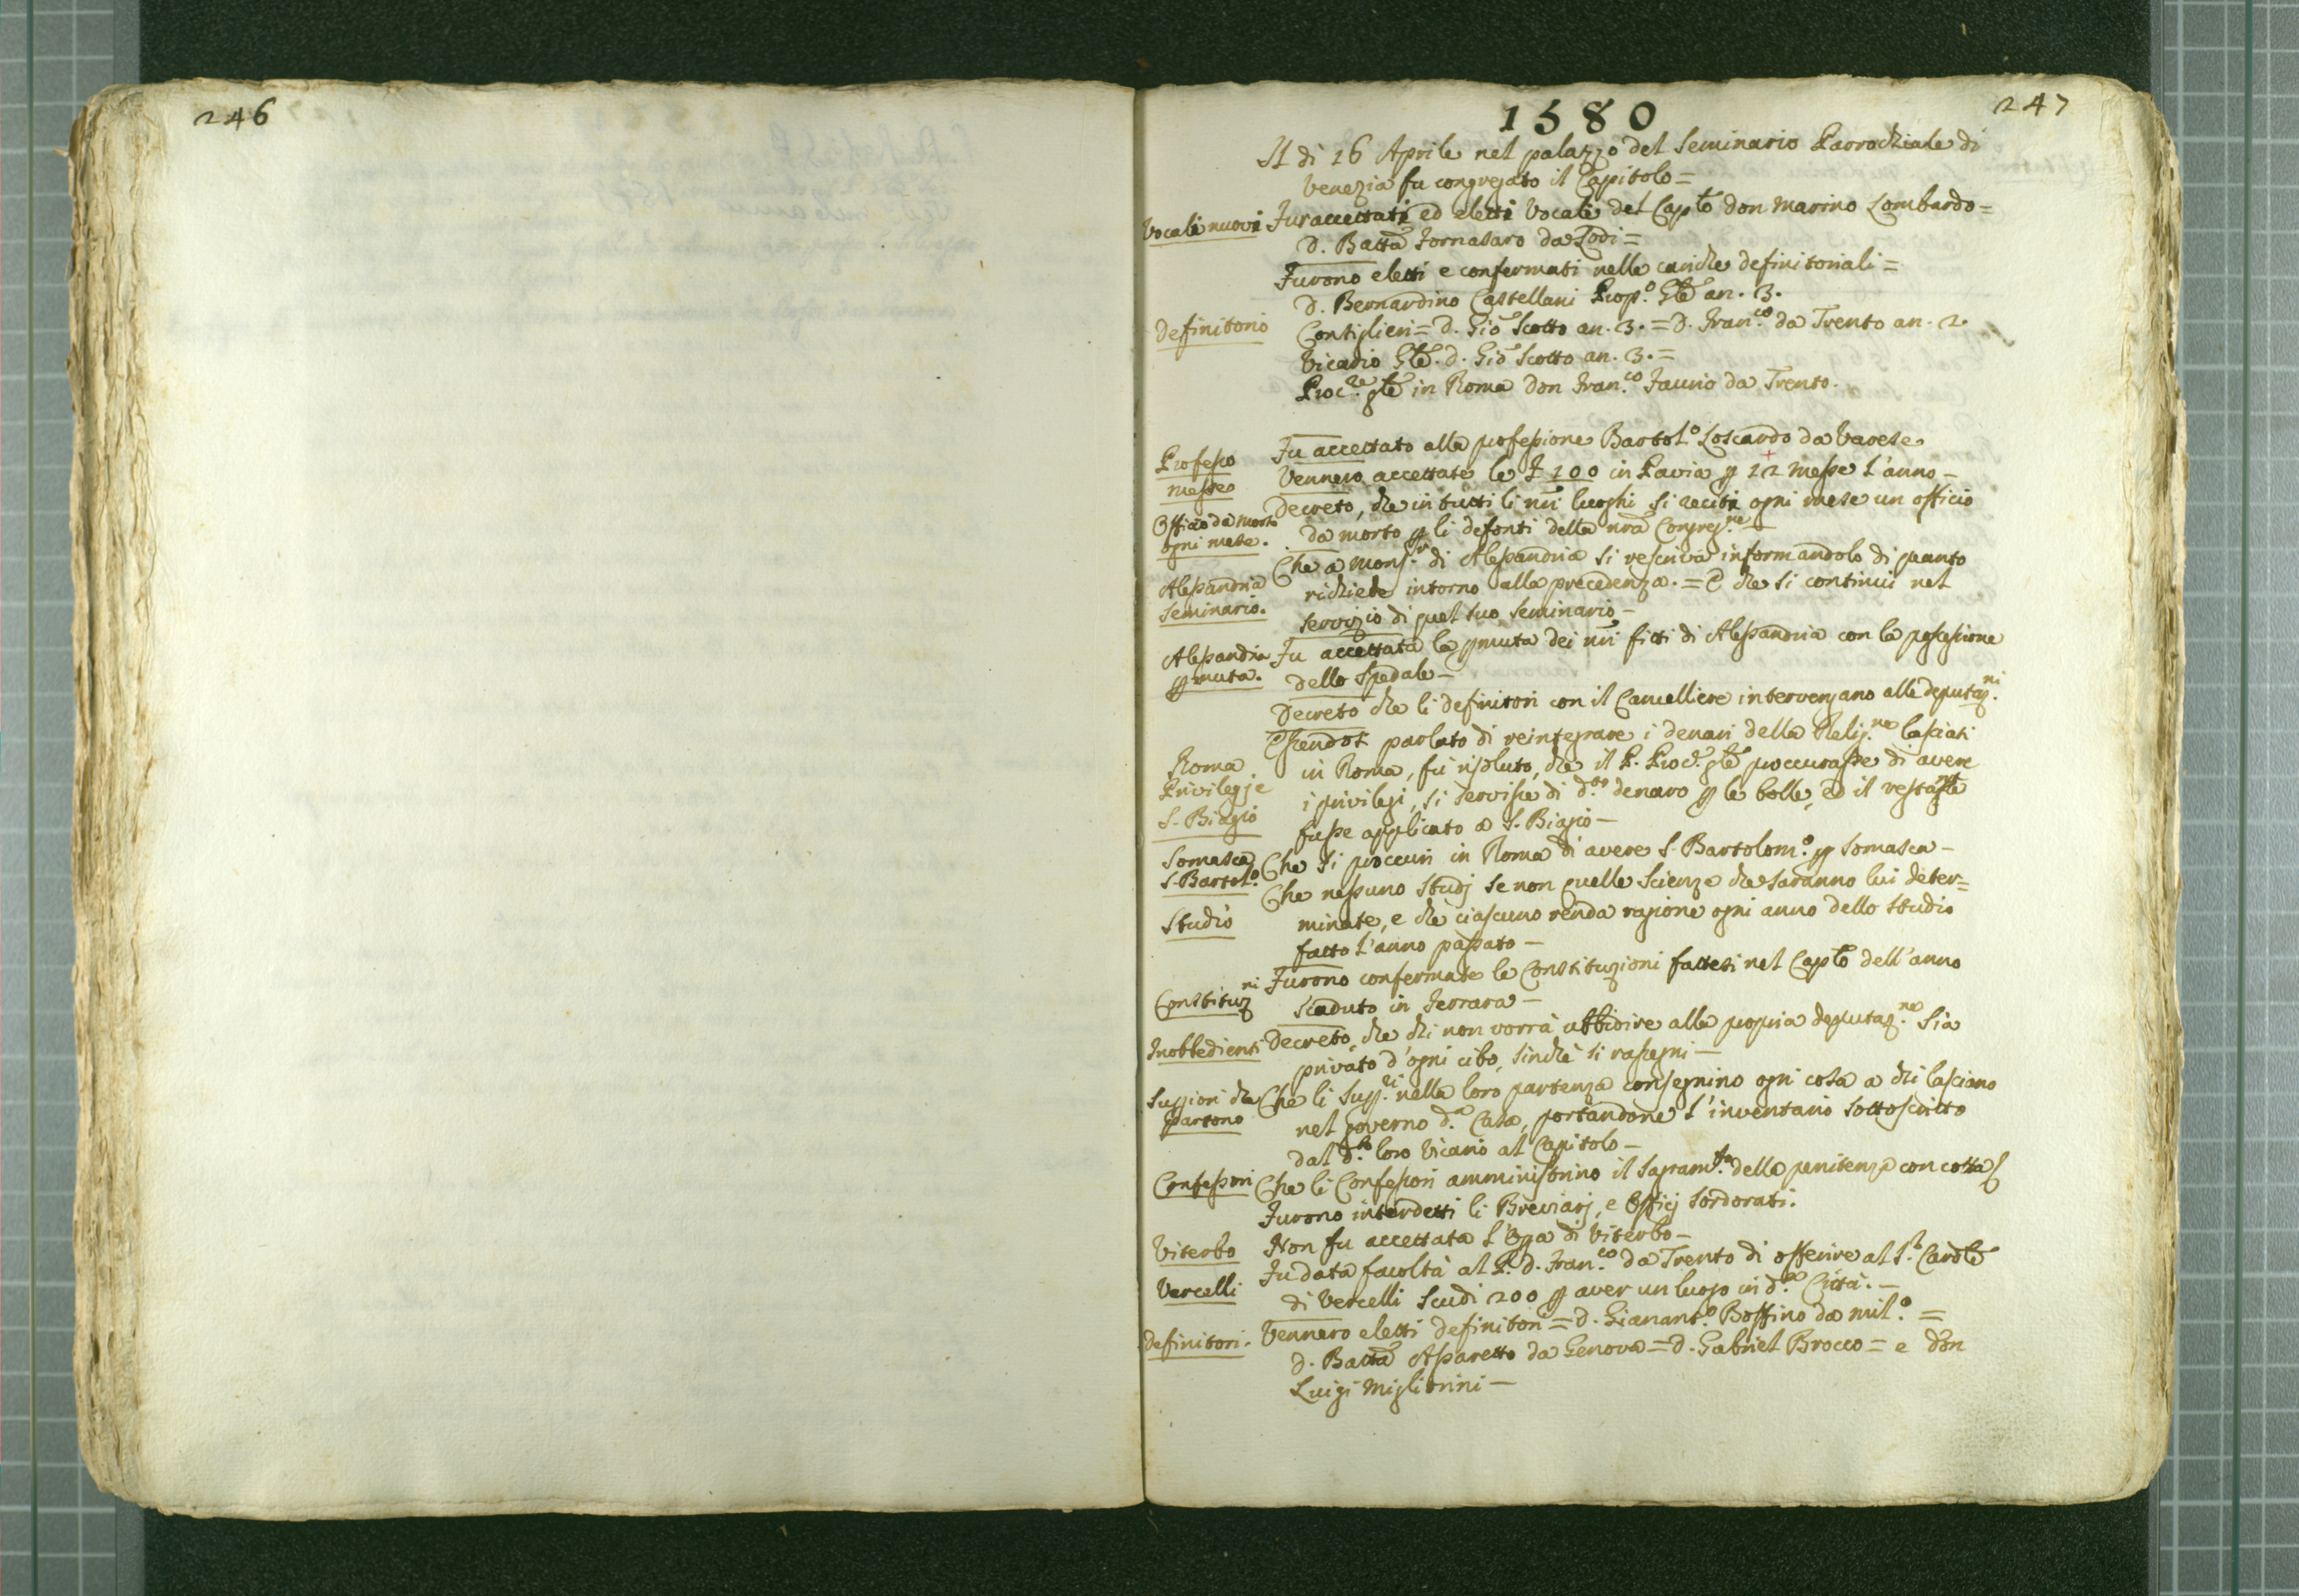 246
247
1580
Il dì 16 Aprile nel palazzo del Seminario Parrochiale di
Venezia fu congregato il Capitolo =
Vocali nuovi Fur accettati ed eletti Vocali del Capto don Marino Lombardo =
D. Batta Fornasaro da Lodi =
Furono eletti e confermati nelle cariche definitoriali =
D. Bernardino Castellani Prop.o Gle an. 3.
Definitorio Consiglieri = D. Gio Scotto an. 3. = D. Fran.co da Trento an. 2.
Vicario Gle. d. Gio Scotto an. 3. =
Proc.re gle in Roma don Fran.co Faurio da Trento.
Professo Fu accettato alla professione Bartol.o Loscardo da Varese
Messe Vennero accettate le £ 100 in Pavia p 12 Messe l'anno –
Officio da morto Decreto, che in tutti li nri luoghi si reciti ogni mese un officio
ogni mese. da morto p li defonti della nra Congreg.ne –
Che a Mons.r di Alessandria si rescriva informandolo di quanto
Alessandria richiede intorno alla precedenza. = E che si continui nel
Seminario. servizio di quel suo Seminario –
Alessandria Fu accettata la pmuta dei nri fitti di Alessandria con la possessione
pmuta. dello Spedale –
Decreto che li definitori con il Cancelliere intervengano alle deputaz.ni
Essendosi parlato di reintegrare i denari della Relig.ne lasciati
Roma in Roma, fu risoluto, che il P. Proc.r gle proccurasse di avere
Privilegje i privilegi, si servisse di d.to denaro p le bolle, ed il restante
S. Biagio fusse applicato a S. Biagio –
Somasca Che si proccuri in Roma di avere S. Bartolom.o p Somasca –
S. Bartol.o Che nessuno studj se non quelle Scienze che saranno lui deter=
Studio minate, e che ciascuno renda ragione ogni anno dello studio
fatto l'anno passato –
Constituz.ni Furono confermate le Constituzioni fattesi nel Capto dell'anno
scaduto in Ferrara –
Inobbedienti Decreto, che chi non vorrà ubbidire alla propria deputaz.ne sia
privato d'ogni cibo, sinchè si rassegni –
Suppiori che Che li Supp.ri nella loro partenza consegnino ogni cosa a chi lasciano
partono nel governo d.a Casa, portandone l'inventario sottoscritto
dal d.to loro Vicario al Capitolo –
Confessori Che li Confessori amministrino il Sagram.to della penitenza con cotta
Furono interdetti li Breviarj, e Officj sordorati.
Viterbo Non fu accettata l'Opa di Viterbo –
Vercelli Fu data facoltà al P. D. Fran.co da Trento di offerire al S.r Cardle
di Vercelli Scudi 200 p aver un luogo in d.a Città. –
Definitori. Vennero eletti definitori = D. Gianant.o Boffino da Mil.o =
D. Batta Assaretto da Genova = D. Gabriel Brocco = e don
Luigi Migliorini –